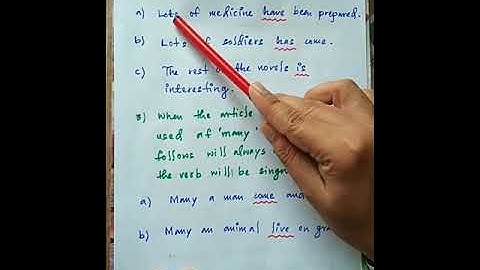 a) Lots of medicine have been prepared.
b) Lots of soldiers has come.
c) The rest of the novels is
interesting.
3) When the article
used af 'many'
follows will always
the verb will be sing
a) Many a man come and
b) Many an animal live on